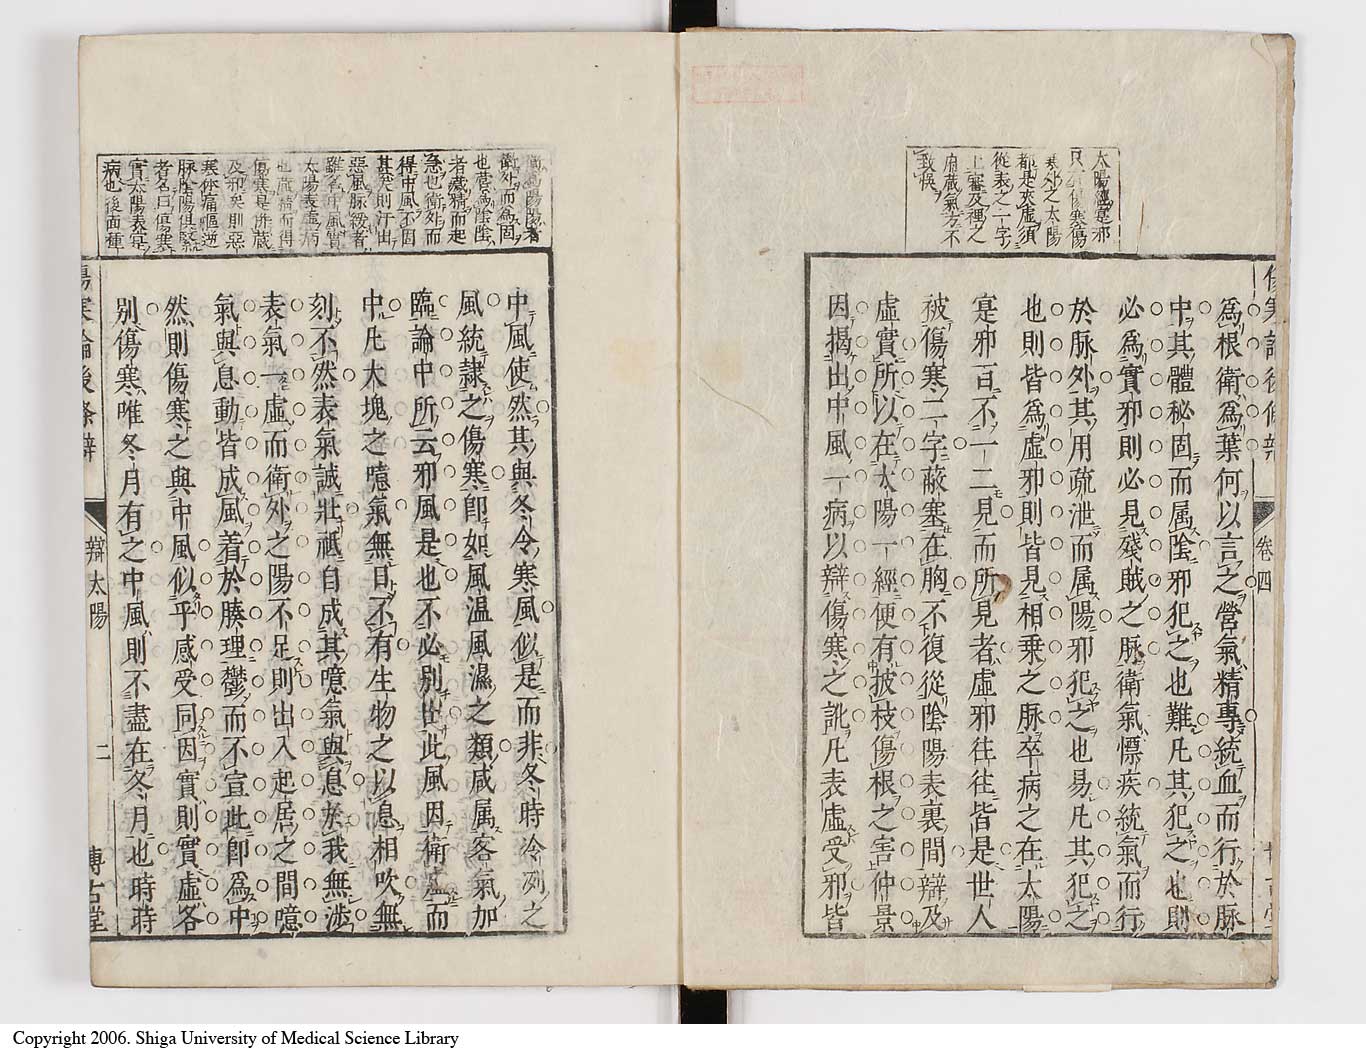 太陽經寒邪
只一傷寒傷
寒外之太陽
都是表虛須
從表之一字
上審及裡之
府藏氣方不
致悞
傷寒論後條辯
卷四
為根衛為葉何以言之營氣精專統血而行於脉
中其體秘固而属陰邪犯之也難凡其犯之也則
必為實邪則必見殘賊之脉衛氣慓疾統氣而行
於脉外其用疏泄而属陽邪犯之也易凡其犯之
也則皆為虛邪則皆見相乗之脉卒病之在太陽
寔邪百不一二見而所見者虛邪往往皆是世人
被傷寒二字蔽塞在胸不復從陰陽表裏間辯及
虛實所以在太陽一經便有披枝傷根之害仲景
因揭出中風一病以辯傷寒之訛凡表虛受邪皆
衛為陽陽者
衛外而為固
也營為陰陰
者藏精而起
急也衛外而
得中風不因
其矣則汗出
惡風脉緩者
雖名中風實
太陽表虛病
也藏精而得
傷寒是所藏
及邪矣則惡
寒体痛嘔逆
脉陰陽俱緊
者名曰傷寒
實太陽表寔
病也後面種
中風使然其與冬令寒風似是而非冬時冷冽之
風統隷之傷寒即如風温風濕之類咸属客氣加
臨論中所云邪風是也不必別出此風因衛虛而
中凡大塊之噫氣無日不有生物之以息相吹無
刻不然表氣誠壯祗自成其噫氣與息於我無渉
表氣一虛而衛外之陽不足則出入起居之間噫
氣與息動皆成風着於腠理鬱而不宣此即為中
然則傷寒之與中風似乎感受同因實則實虛各
別傷寒唯冬月有之中風則不盡在冬月也時時
傷寒論後條辯
辯太陽
二
博古堂